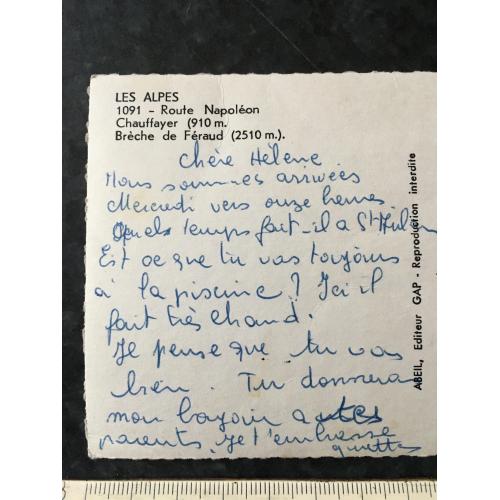 LES ALPES
1091 - Route Napoléon
Chauffayer (910 m.
Brèche de Féraud (2510 m.).
Chère Hélène
Nous sommes arrivées
Mercredi vers onze heures
Quels temps fait-il a St
Est ce que tu vas toujours
à la piscine? Ici il
fait très chaud.
Je pense que tu vas
bien. Tu donnera
mon bonjour a tes
parents. Je t'embrasse
ABEIL, Editeur GAP - Reproduction interdite